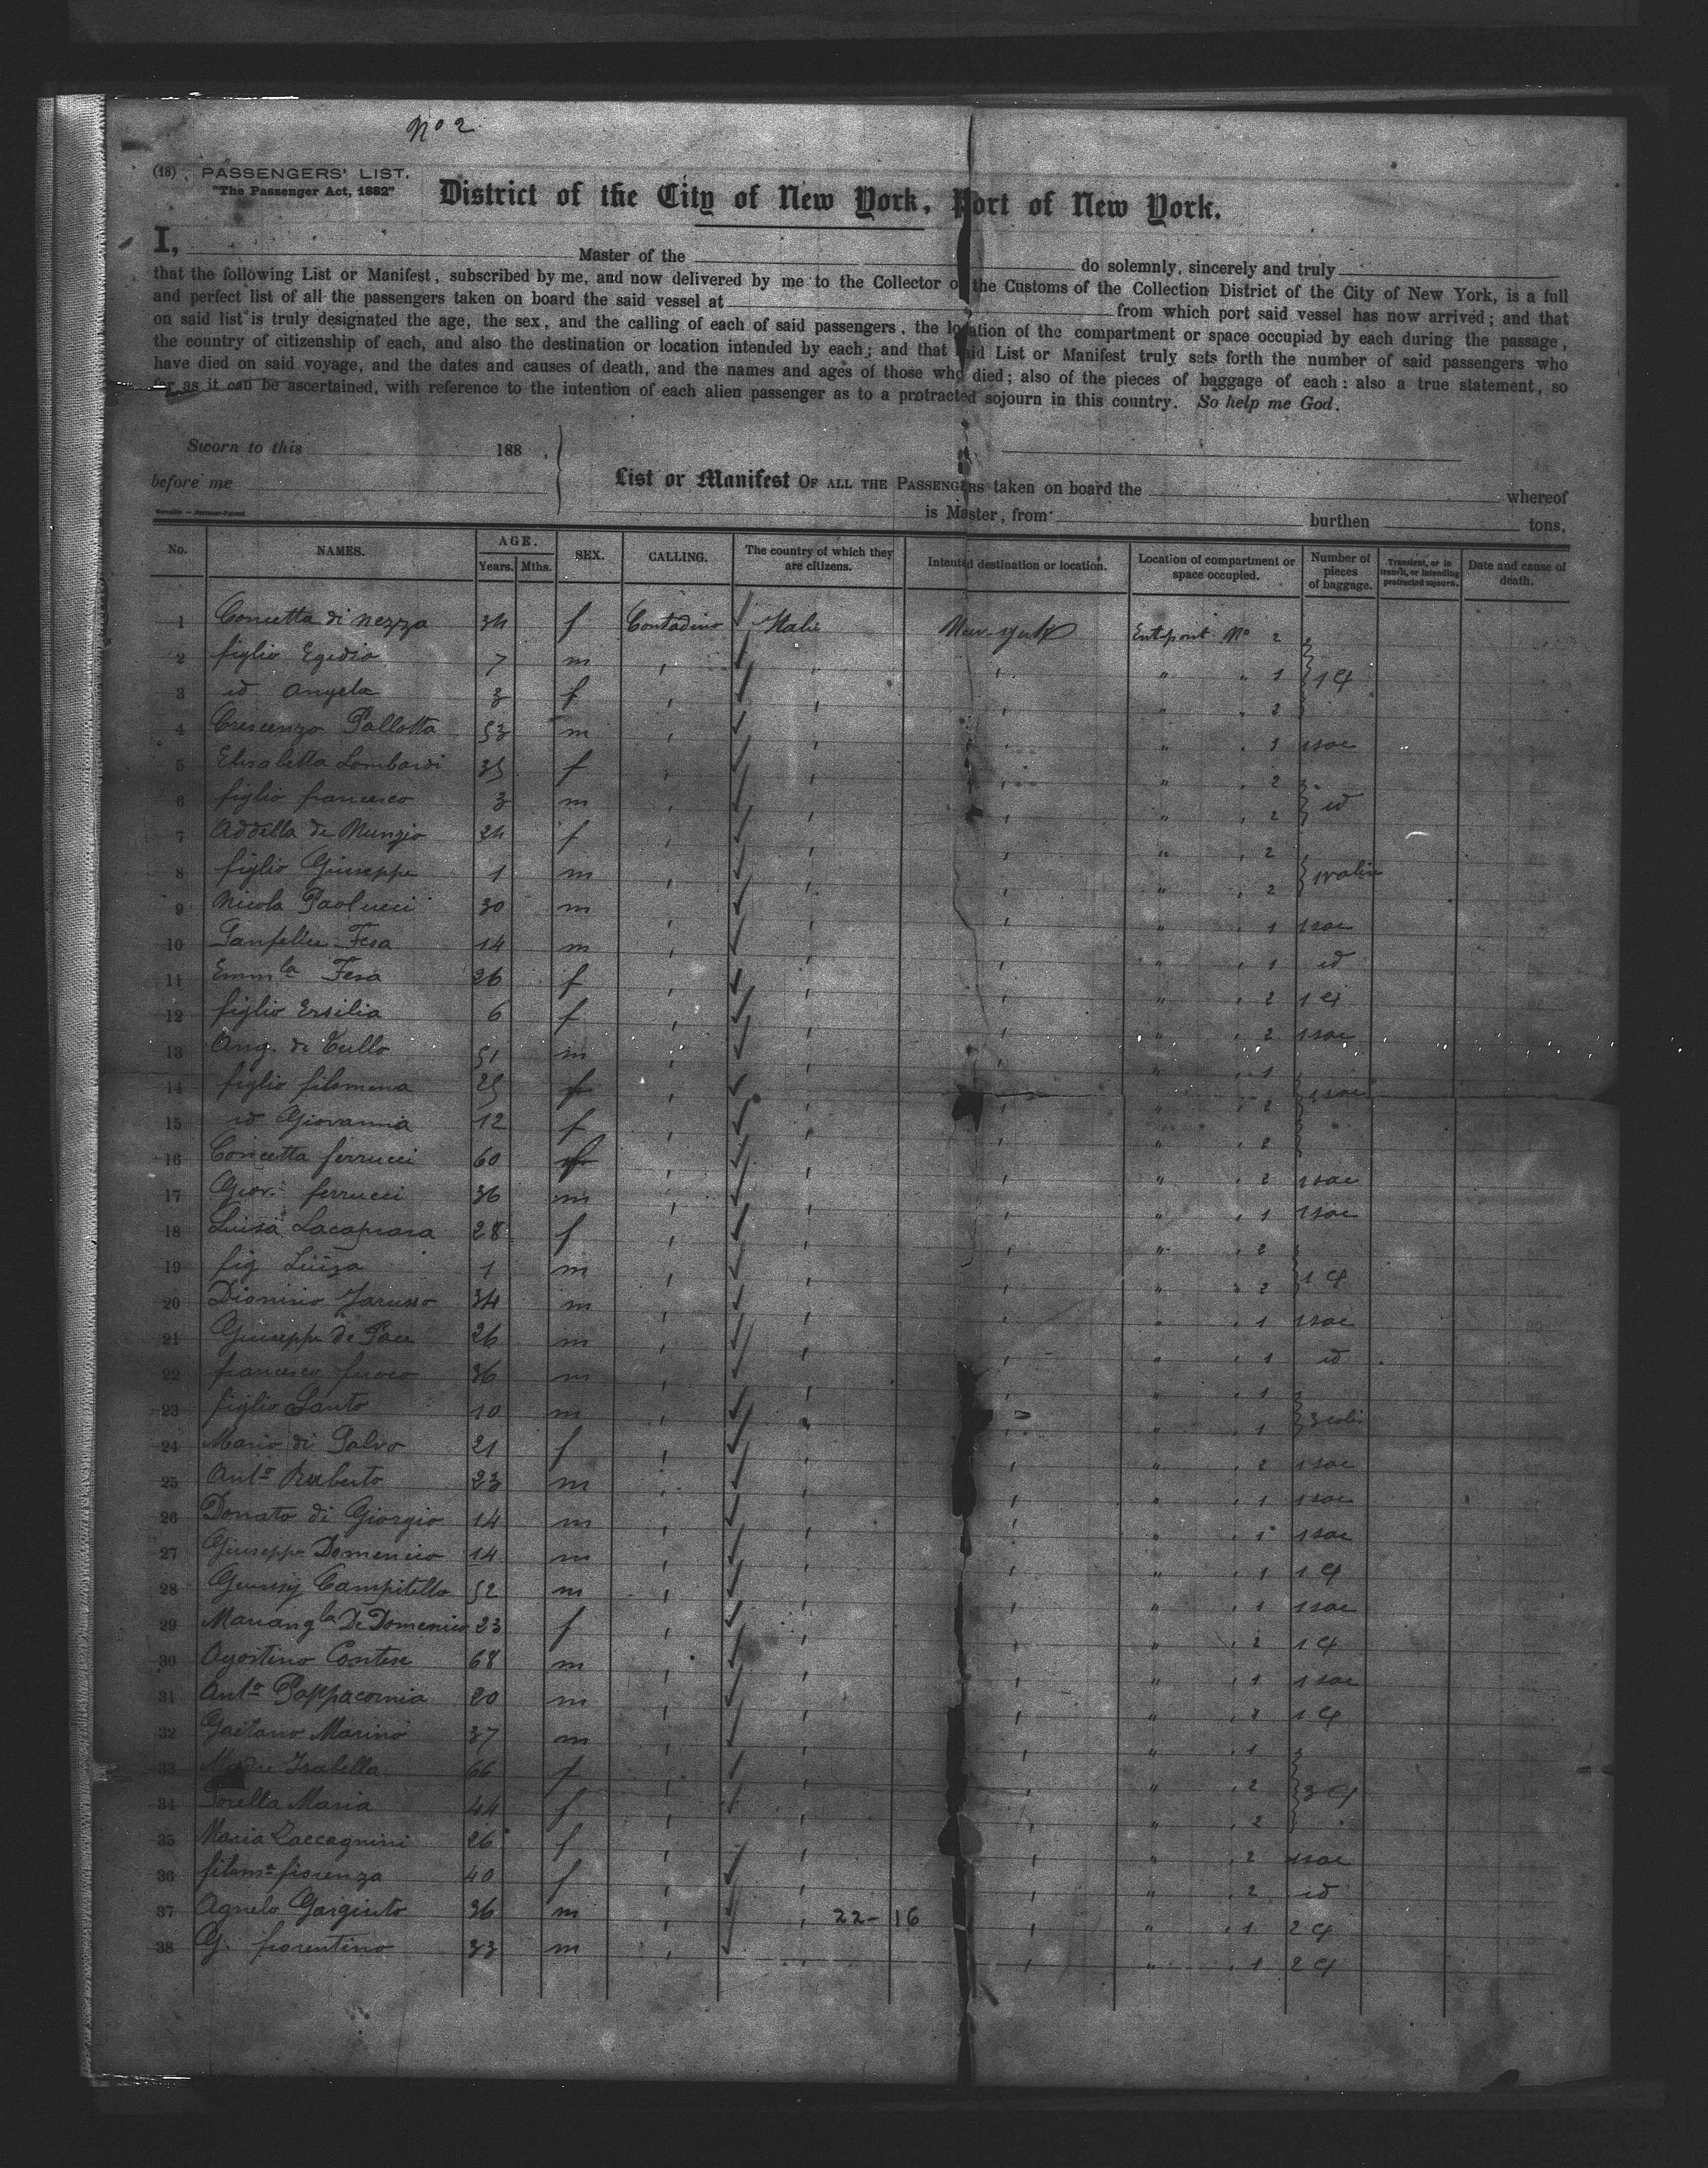 No 2
(18) PASSENGERS' LIST.
"The Passenger Act, 1882"
District of the City of New York, Port of New York.
I, Master of the do solemnly, sincerely and truly
that the following List or Manifest, subscribed by me, and now delivered by me to the Collector of the Customs of the Collection District of the City of New York, is a full
and perfect list of all the passengers taken on board the said vessel at from which port said vessel has now arrived; and that
on said list is truly designated the age, the sex, and the calling of each of said passengers, the location of the compartment or space occupied by each during the passage,
the country of citizenship of each, and also the destination or location intended by each; and that said List or Manifest truly sets forth the number of said passengers who
have died on said voyage, and the dates and causes of death, and the names and ages of those who died; also of the pieces of baggage of each: also a true statement, so
far as it can be ascertained, with reference to the intention of each alien passenger as to a protracted sojourn in this country. So help me God.
Sworn to this 188 .
before me
List or Manifest OF ALL THE PASSENGERS taken on board the whereof
is Master, from burthen tons.
No. NAMES. AGE. Years. Mths. SEX. CALLING. The country of which they are citizens. Intented destination or location. Location of compartment or space occupied. Number of pieces of baggage. Transient, or in transit, or intending protracted sojourn. Date and cause of death.
1 Concetta di Nezza 34 f Contadino Italie New-york Entrepont No 2
2 figlio Egidio 7 m " " " " " 1 1 Cf
3 id Angela 3 f " " " " " 2
4 Crescenzo Pallotta 53 m " " " " " 1 1 sac
5 Elisabetta Lombardi 35 f " " " " " 2
6 figlio francesco 3 m " " " " " 2 id
7 Addella de Nunzio 24 f " " " " " 2
8 figlio Giuseppe 1 m " " " " " 2 1 valise
9 Nicola Paolucci 30 m " " " " " 1 1 sac
10 Panfelli Fesa 14 m " " " " " 1 id
11 Emmla Fesa 26 f " " " " " 2 1 Cf
12 figlio Ersilia 6 f " " " " " 2 1 sac
13 Ang. di Tullo 51 m " " " " " 1
14 figlio filomena 25 f " " " " " 2 1 sac
15 id Giovanna 12 f " " " " " 2
16 Concetta ferrucci 60 f " " " " " 2 1 sac
17 Giov. ferrucci 36 m " " " " " 1 1 sac
18 Luisa Lacaprara 28 f " " " " " 2
19 fig Luiza 1 m " " " " " 2 1 Cf
20 Dionisio Jarusso 34 m " " " " " 1 1 sac
21 Giuseppe de Pace 26 m " " " " " 1 id
22 francesco fuoco 36 m " " " " " 1
23 figlio Santo 10 m " " " " " 1 3 colis
24 Maria di Salvo 21 f " " " " " 2 1 sac
25 Anto Ruberto 23 m " " " " " 1 1 sac
26 Donato di Giorgio 14 m " " " " " 1 1 sac
27 Giuseppe Domenico 14 m " " " " " 1 1 Cf
28 Campitello 52 m " " " " " 1 1 sac
29 Mariangla De Domenico 23 f " " " " " 2 1 Cf
30 Agostino Contese 68 m " " " " " 1 1 sac
31 Anto Pappacornia 20 m " " " " " 1 Cf
32 Gaetano Marino 37 m " " " " " 1
33 Madre Isabella 66 f " " " " " 2 3 Cf
34 Sorella Maria 44 f " " " " " 2
35 Maria Zaccagnini 26 f " " " " " 2 1 sac
36 filoma fiorenza 40 f " " " " " 2 id
37 Agnelo Gargiulo 36 m " " 22-16 " " " 1 2 Cf
38 G. fiorentino 33 m " " " " " 1 2 Cf